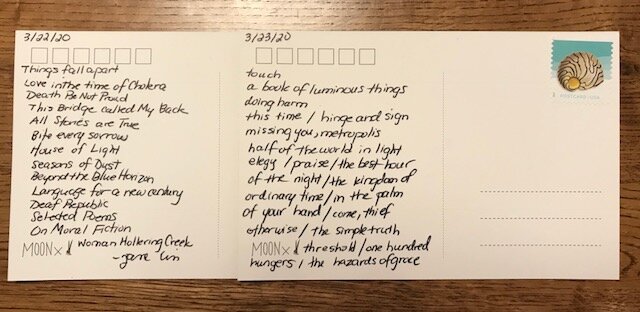 3/22/20
Things fall apart
Love in the time of Cholera
Death Be Not Proud
This Bridge called My Back
All Stories are True
Bite every sorrow
House of Light
Seasons of Dust
Beyond the Blue Horizon
Language for a new century
Deaf Republic
Selected Poems
On Moral Fiction
MOON x Woman Hollering Creek
3/23/20
touch
a book of luminous things
doing harm
this time / hinge and sign
missing you, metropolis
half of the world in light
elegy / praise / the best hour
of the night / the kingdom of
ordinary time / in the palm
of your hand / come, thief
otherwise / the simple truth
MOON x threshold / one hundred
hungers / the hazards of grace
POSTCARD / USA